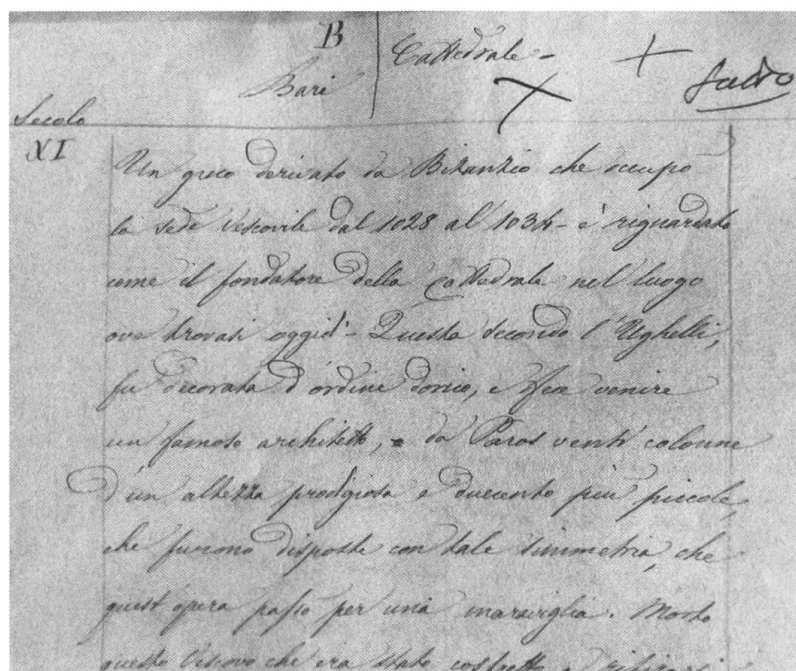 B
Bari
Cattedrale -
Secolo
XI
Un greco derivato da Bizanzio che occupò
la sede Vescovile dal 1028 al 1034 - è riguardato
come il fondatore della cattedrale nel luogo
ove trovasi oggidì - Questa secondo l'Ughelli,
fu decorata d'ordine dorico, e fece venire
un famoso architetto, e da Paros venti colonne
d'un altezza prodigiosa e duecento più piccole,
che furono disposte con tale simmetria, che
quest'opera passò per una maraviglia. Morto
questo Vescovo che era stato costretto a